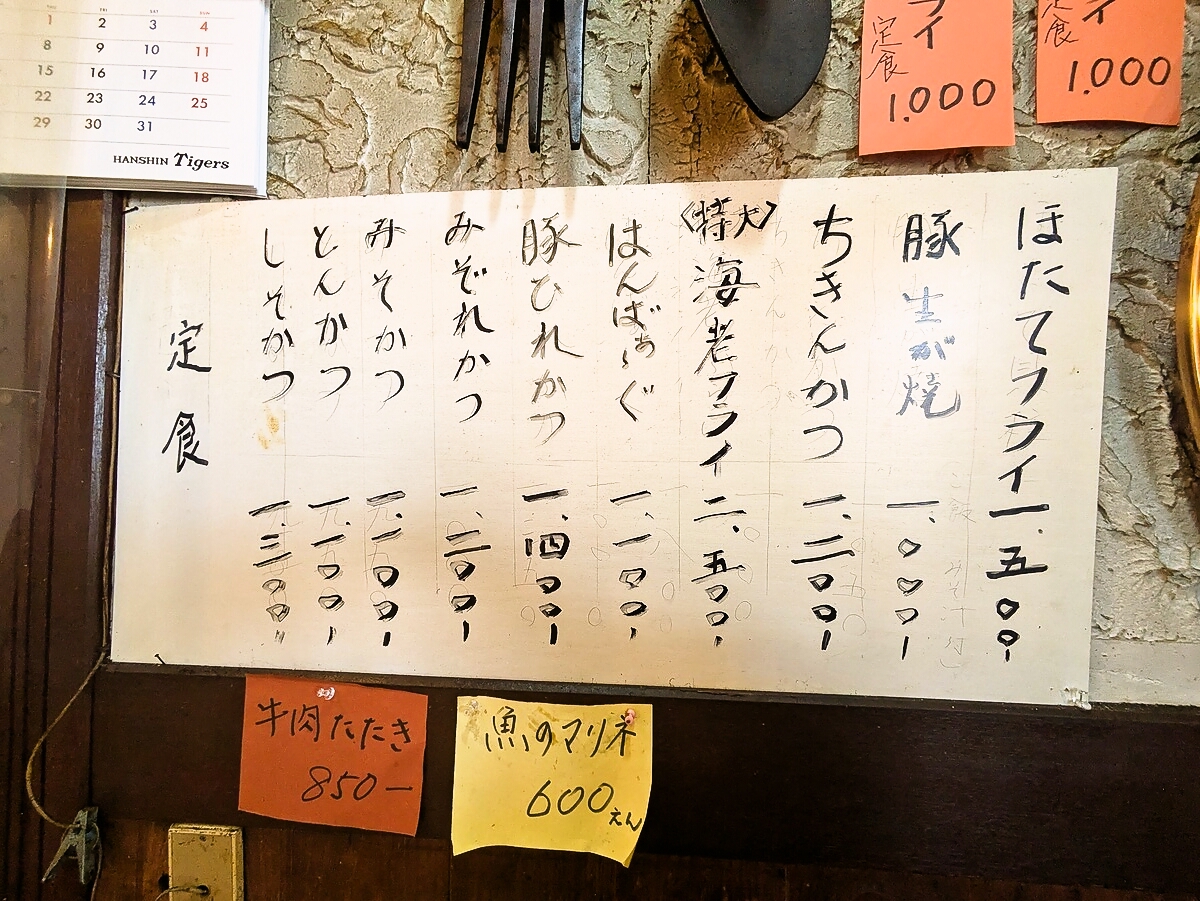 THU FRI SAT SUN
1 2 3 4
8 9 10 11
15 16 17 18
22 23 24 25
29 30 31
HANSHIN Tigers
フライ
定食
1.000
イ
定食
1.000
ほたてフライ 一、五〇〇ー
豚生が焼 一、〇〇〇ー
ちきんかつ 一、二〇〇ー
〈特大〉海老フライ 二、五〇〇ー
はんばぁぐ 一、一〇〇ー
豚ひれかつ 一、四〇〇ー
みぞれかつ 一、二〇〇ー
みそかつ 一、一〇〇ー
とんかつ 一、一〇〇ー
しそかつ 一、三〇〇ー
定食
ご飯 みそ汁付
牛肉たたき
850ー
魚のマリネ
600えん